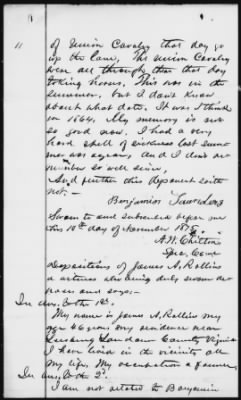 11
of Union Cavalry that day go
up the lane, The Union Cavalry
were all through there that day
taking horses. This was in the
summer, but I don't know
about what date. It was I think
in 1864. My memory is not
so good now. I had a very
hard spell of sickness last sum-
mer was a year, and I don't re-
member so well since.
And further this deponent saith
not. -
Benjamin
Sworn to and subscribed before me
this 18th day of November 187
A. H. Chilton
Spec. Comr
Depositions of James A. Rollins
a witness who being duly sworn de-
poses and says; -
In ans. to the 1st.
My name is James A. Rollins my
age 46 years my residence near
Leesburg Loudoun County Virginia
I have lived in the vicinity all
my life, My occupation a farmer
In ans. to the 2d.
I am not related to Benjamin